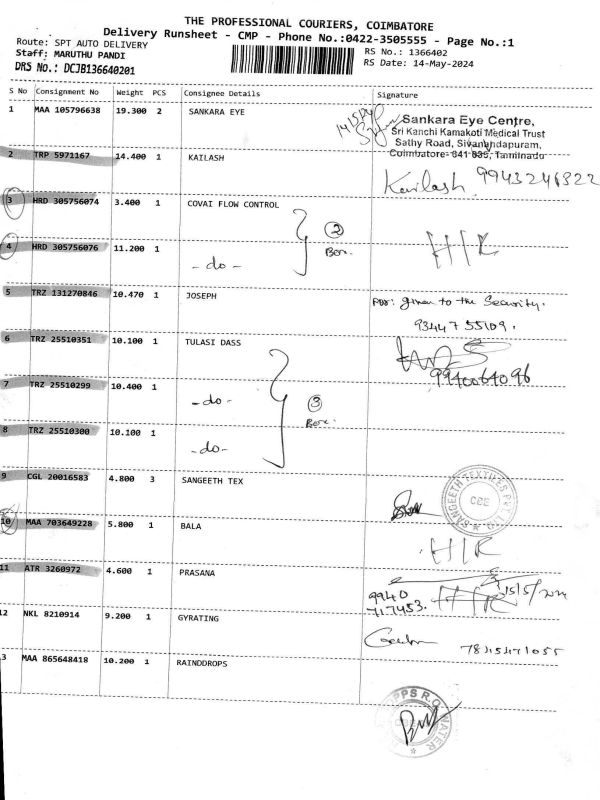 THE PROFESSIONAL COURIERS, COIMBATORE
Delivery Runsheet - CMP - Phone No.:0422-3505555 - Page No.:1
Route: SPT AUTO DELIVERY
Staff: MARUTHU PANDI
DRS No.: DCJB136640201
RS No.: 1366402
RS Date: 14-May-2024
S No Consignment No Weight PCS Consignee Details Signature
1 MAA 105796638 19.300 2 SANKARA EYE
Sankara Eye Centre,
Sri Kanchi Kamakoti Medical Trust
Sathy Road, Sivanandapuram,
Coimbatore- 641 035, Tamilnadu
2 TRP 5971167 14.400 1 KAILASH
Kailash 9943246322
3 HRD 305756074 3.400 1 COVAI FLOW CONTROL
2
Box.
4 HRD 305756076 11.200 1 -do-
H/R
5 TRZ 131270846 10.470 1 JOSEPH
given to the Security.
93447 55109.
6 TRZ 25510351 10.100 1 TULASI DASS
9940064096
7 TRZ 25510299 10.400 1 -do-
3
Box.
8 TRZ 25510300 10.100 1 -do-
9 CGL 20016583 4.800 3 SANGEETH TEX
SANGEETH TEXTILES
CBE
10 MAA 703649228 5.800 1 BALA
H/R
11 ATR 3260972 4.600 1 PRASANA
9940
717453.
12 NKL 8210914 9.200 1 GYRATING
3 MAA 865648418 10.200 1 RAINDDROPS